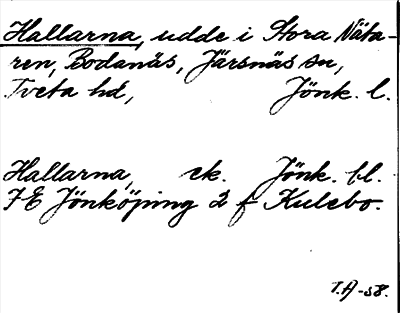 Hallarna, udde i Stora Näta-
ren, Bodanäs, Järsnäs sn,
Tveta hd, Jönk. l.
Hallarna, ek. Jönk. bl.
7E Jönköping 2 f Kulebo.
T.A -58.